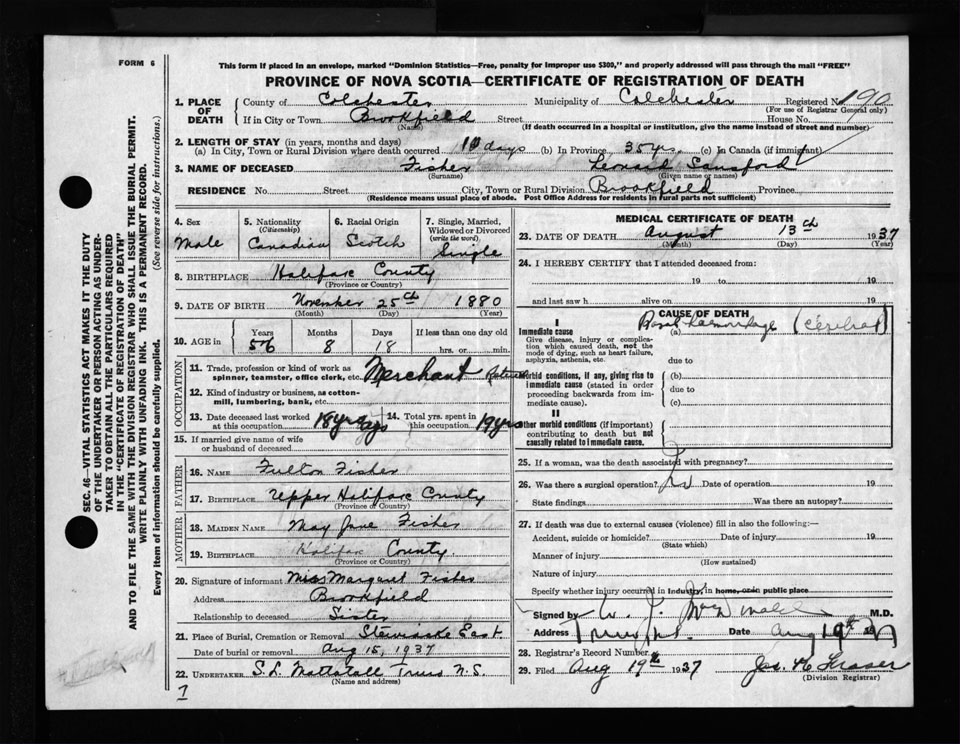 FORM 6
This form if placed in an envelope, marked "Dominion Statistics—Free, penalty for improper use $300," and properly addressed will pass through the mail "FREE"
PROVINCE OF NOVA SCOTIA—CERTIFICATE OF REGISTRATION OF DEATH
1. PLACE OF DEATH
County of Colchester Municipality of Colchester Registered No. 190
(For use of Registrar General only)
If in City or Town Brookfield Street House No.
(Name) (If death occurred in a hospital or institution, give the name instead of street and number)
2. LENGTH OF STAY (in years, months and days)
(a) In City, Town or Rural Division where death occurred 10 days (b) In Province 35 yrs. (c) In Canada (if immigrant)
3. NAME OF DECEASED Fisher Leonard Sansford
(Surname) (Given name or names)
RESIDENCE No. Street City, Town or Rural Division Brookfield Province
(Residence means usual place of abode. Post Office Address for residents in rural parts not sufficient)
4. Sex Male
5. Nationality (Citizenship) Canadian
6. Racial Origin Scotch
7. Single, Married, Widowed or Divorced (write the word) Single
8. BIRTHPLACE Halifax County
(Province or Country)
9. DATE OF BIRTH November 25th 1880
(Month) (Day) (Year)
10. AGE in Years 56 Months 8 Days 18 If less than one day old hrs. or min.
OCCUPATION
11. Trade, profession or kind of work as spinner, teamster, office clerk, etc. Merchant Retired
12. Kind of industry or business, as cotton-mill, lumbering, bank, etc.
13. Date deceased last worked at this occupation 18 yrs ago
14. Total yrs. spent in this occupation 19 yrs
15. If married give name of wife or husband of deceased
FATHER
16. NAME Fulton Fisher
17. BIRTHPLACE Upper Halifax County
(Province or Country)
MOTHER
18. MAIDEN NAME May Jane Fisher
19. BIRTHPLACE Halifax County.
(Province or Country)
20. Signature of informant Miss Margaret Fisher
Address Brookfield
Relationship to deceased Sister
21. Place of Burial, Cremation or Removal Stewiacke East
Date of burial or removal Aug 15, 1937
22. UNDERTAKER S.L. Mattatall Truro N.S
(Name and address)
MEDICAL CERTIFICATE OF DEATH
23. DATE OF DEATH August 13th 1937
(Month) (Day) (Year)
24. I HEREBY CERTIFY that I attended deceased from:
19 to 19
and last saw h alive on 19
CAUSE OF DEATH
I
Immediate cause (a) Basal haemorrhage (cerebral)
Give disease, injury or complication which caused death, not the mode of dying, such as heart failure, asphyxia, asthenia, etc.
due to
Morbid conditions, if any, giving rise to immediate cause (stated in order proceeding backwards from immediate cause).
(b)
due to
(c)
II
Other morbid conditions (if important) contributing to death but not causally related to immediate cause.
25. If a woman, was the death associated with pregnancy?
26. Was there a surgical operation? Date of operation 19
State findings Was there an autopsy?
27. If death was due to external causes (violence) fill in also the following:—
Accident, suicide or homicide? Date of injury 19
(State which)
Manner of injury
(How sustained)
Nature of injury
Specify whether injury occurred in industry, in home, or in public place
Signed by M.D.
Address Truro, N.S. Date Aug 19th 1937
28. Registrar's Record Number
29. Filed Aug 19th 1937 Jos. Fraser
(Division Registrar)
SEC. 46—VITAL STATISTICS ACT MAKES IT THE DUTY
OF THE UNDERTAKER OR PERSON ACTING AS UNDER-
TAKER TO OBTAIN ALL THE PARTICULARS REQUIRED
IN THE "CERTIFICATE OF REGISTRATION OF DEATH"
AND TO FILE THE SAME WITH THE DIVISION REGISTRAR WHO SHALL ISSUE THE BURIAL PERMIT.
WRITE PLAINLY WITH UNFADING INK. THIS IS A PERMANENT RECORD.
Every item of Information should be carefully supplied. (See reverse side for instructions.)